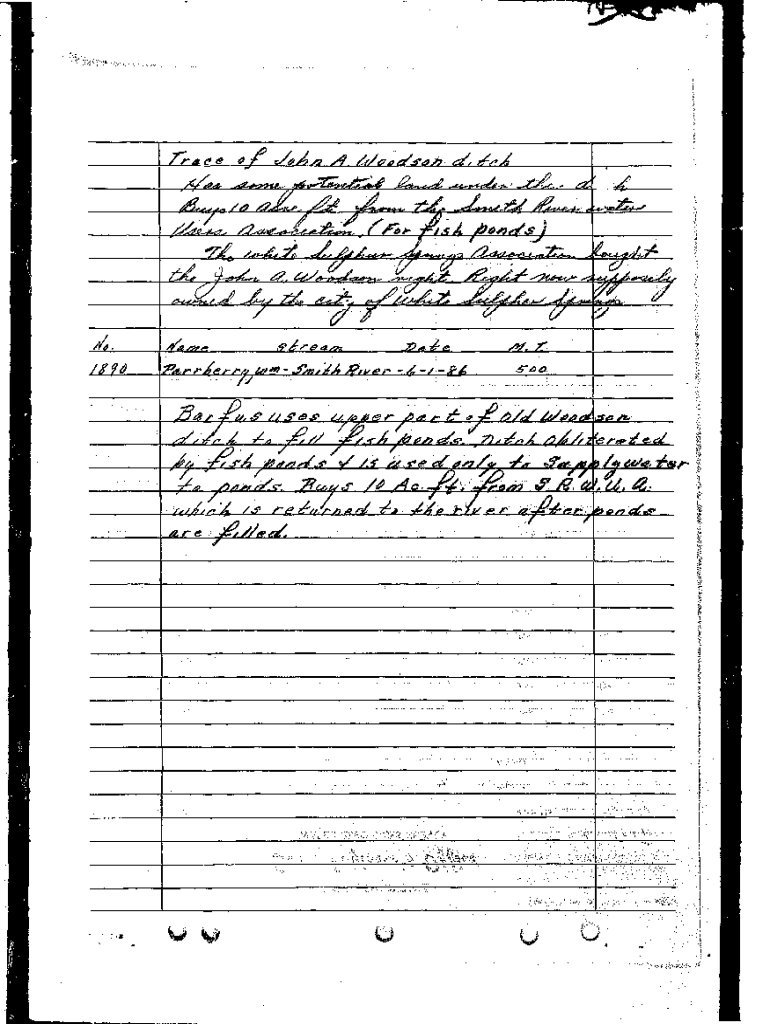 Trace of John A Woodson ditch
Has some potential land under the d h
Buys 10 acre ft. from the Smith River water
Users Association. (For fish ponds)
The White Sulphur Springs Association bought
the John A. Woodson right. Right now supposely
owned by the city of White Sulphur Springs
No. Name Stream Date M.I.
1890 Parrberry, Wm - Smith River - 6-1-86 500
Barfus uses upper part of old Woodson
ditch to fill fish ponds. Ditch obliterated
by fish ponds & is used only to supply water
to ponds. Buys 10 Ac ft. from S.R.W.U.A.
which is returned to the river after ponds
are filled.